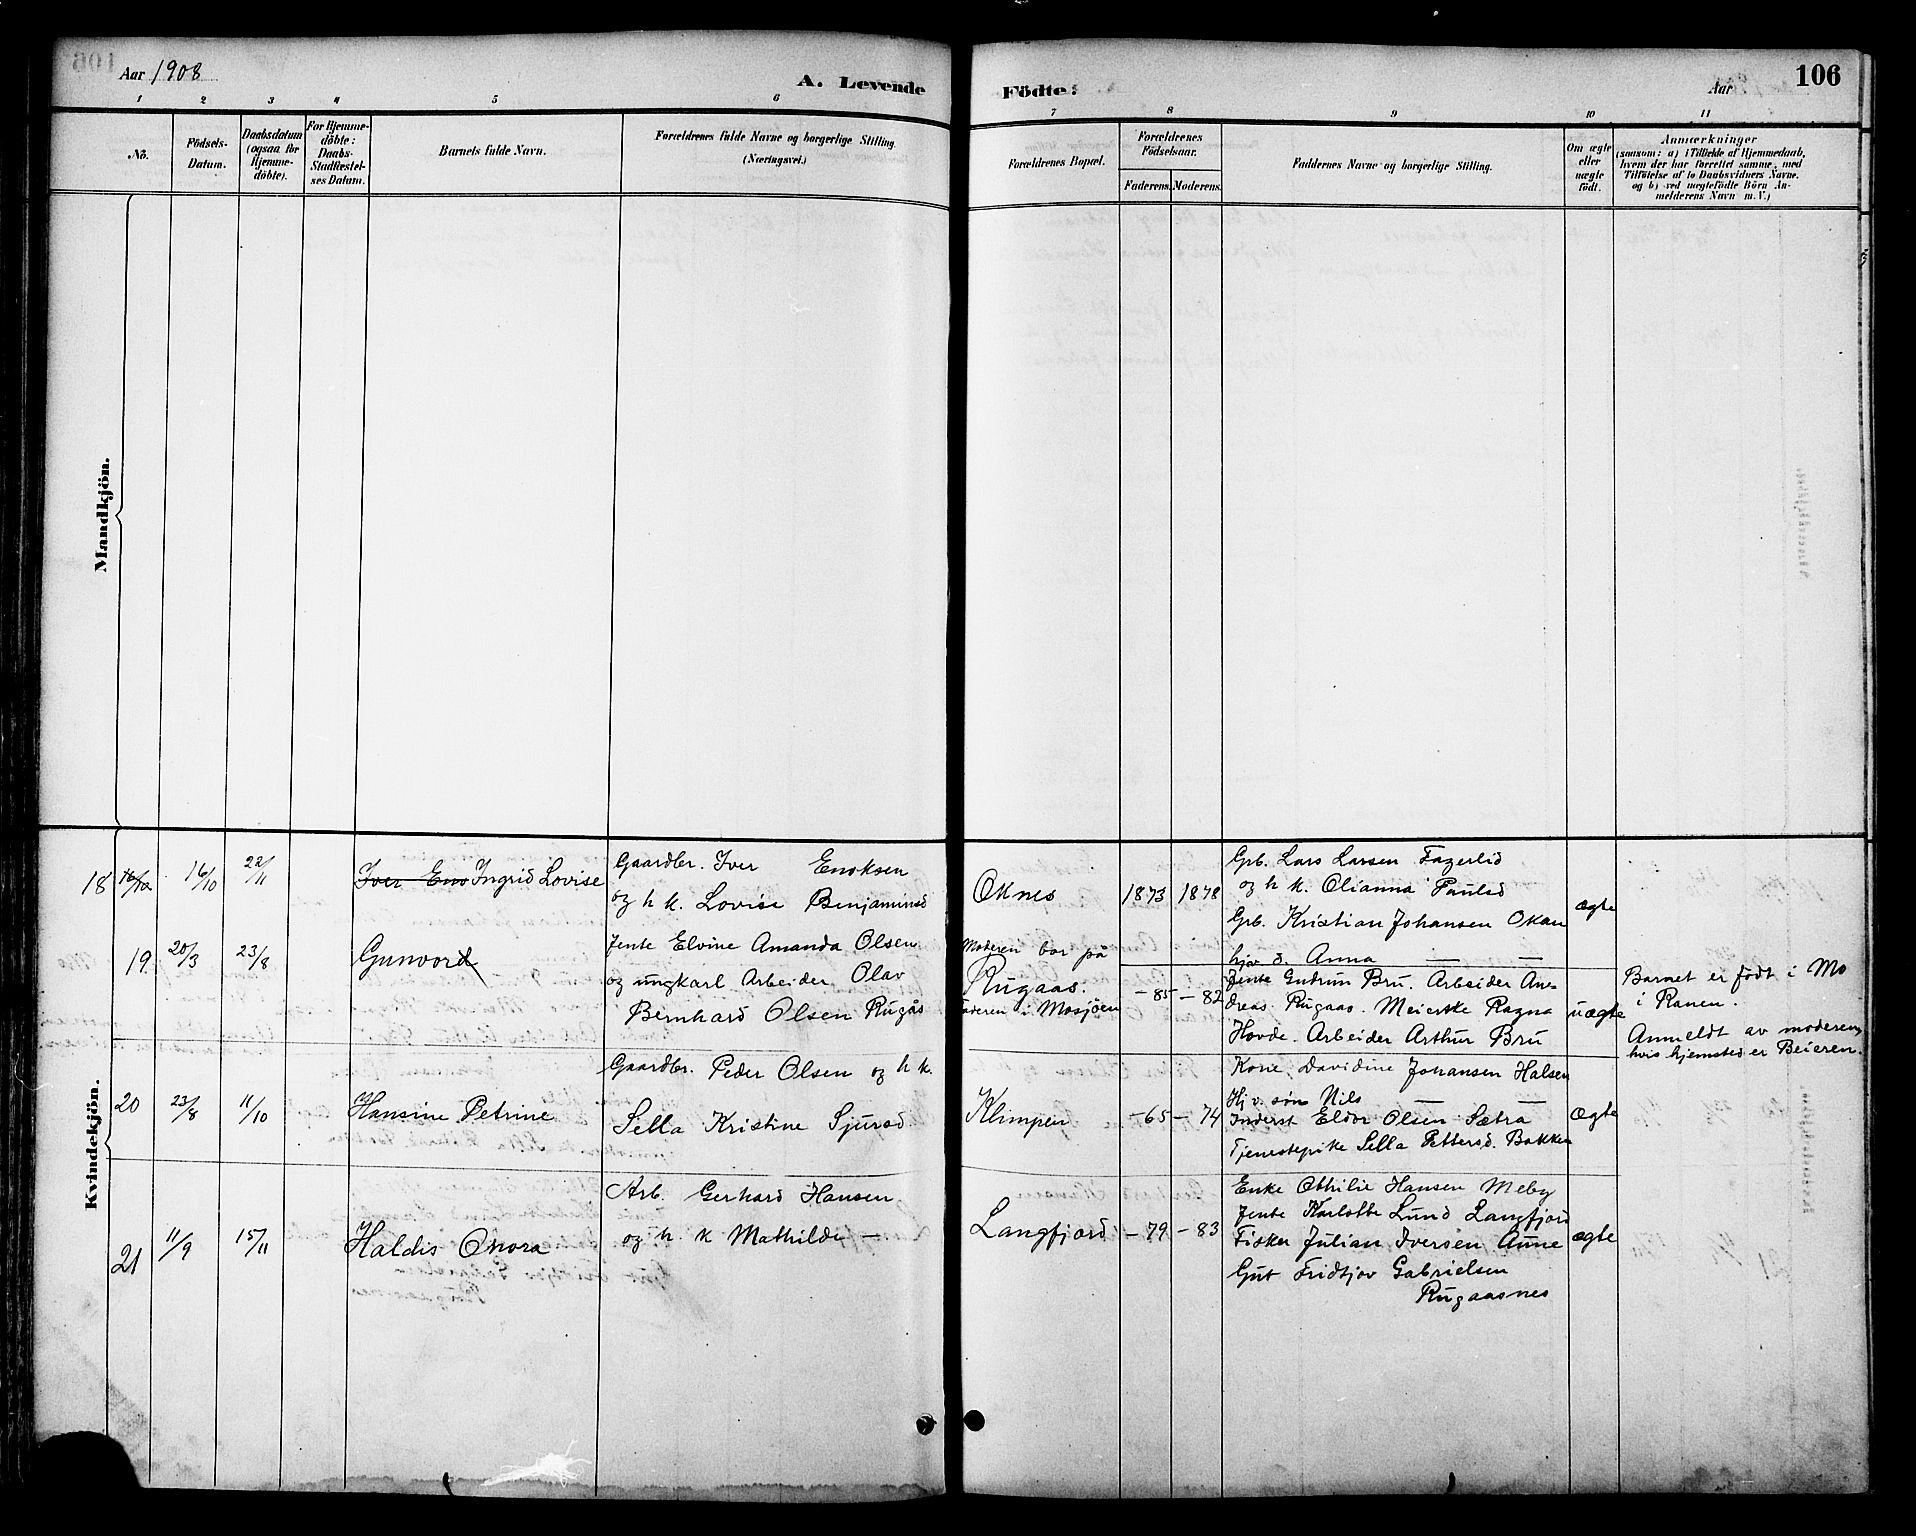 Aar 1908
A. Levende
Födte:
Aar
106
1 2 3 4 5 6 7 8 9 10 11
No.
Födsels-
Datum.
Daabsdatum
(ogsaa for
Hjemme-
döbte).
For Hjemme-
döbte:
Daabs-
Stadfæstel-
ses Datum.
Barnets fulde Navn.
Forældrenes fulde Navne og borgerlige Stilling.
(Næringsvei.)
Forældrenes Bopæl.
Forældrenes
Födselsaar.
Faderens. Moderens.
Faddernes Navne og borgerlige Stilling.
Om ægte
eller
uægte
födt.
Anmærkninger
(saasom: a) i Tilfælde af Hjemmedaab,
hvem der har forrettet samme, med
Tilföielse af to Daabsvidners Navne.
og b) ved uægtefödte Börn An-
melderens Navn m. V.)
Mandkjön.
Kvindekjön.
18 16/10 16/10 22/11
Iver Eno Ingrid Lovise
Gaardbr. Iver Enoksen
og h k. Lovise Benjaminsd
Oknes
1873 1878
Gpb. Lars Larsen Fagerlid
og h k. Olianna Paulsd
Gpb. Kristian Johansen Okan
hjv d. Anna — —
ægte
19 20/3 23/8
Gunvord
Jente Elvine Amanda Olsen
og ungkarl Arbeider Olav
Bernhard Olsen Rugås
Moderen bor på
Rugaas.
Faderen i Mosjøen
- 85 - 82
Jente Gudrun Bru. Arbeider An-
dreas Rugaas. Meierske Ragna
Hovde. Arbeider Arthur Bru
uægte
Barnet er født i Mo
i Ranen.
Anmeldt av moderen,
hvis hjemsted er Beieren.
20 23/8 11/10
Hansine Petrine
Gaardbr. Peder Olsen og h k.
Sella Kristine Sjursd
Klimpen
- 65 - 74
Kone Davidine Johansen Halsen
Hj v. søn Nils — —
Inderst Eldor Olsen Sætra
Tjenestepike Sella Pettersd. Bakken
ægte
21 11/9 15/11
Haldis Onora
Arb. Gerhard Hansen
og h. k Mathilde —
Langfjord
- 79 - 83
Enke Othilie Hansen Meby
Jente Karlotte Lund Langfjord
Fisker Julian Iversen Aune
Gut Fridtjov Gabrielsen
Rugaasnes
ægte